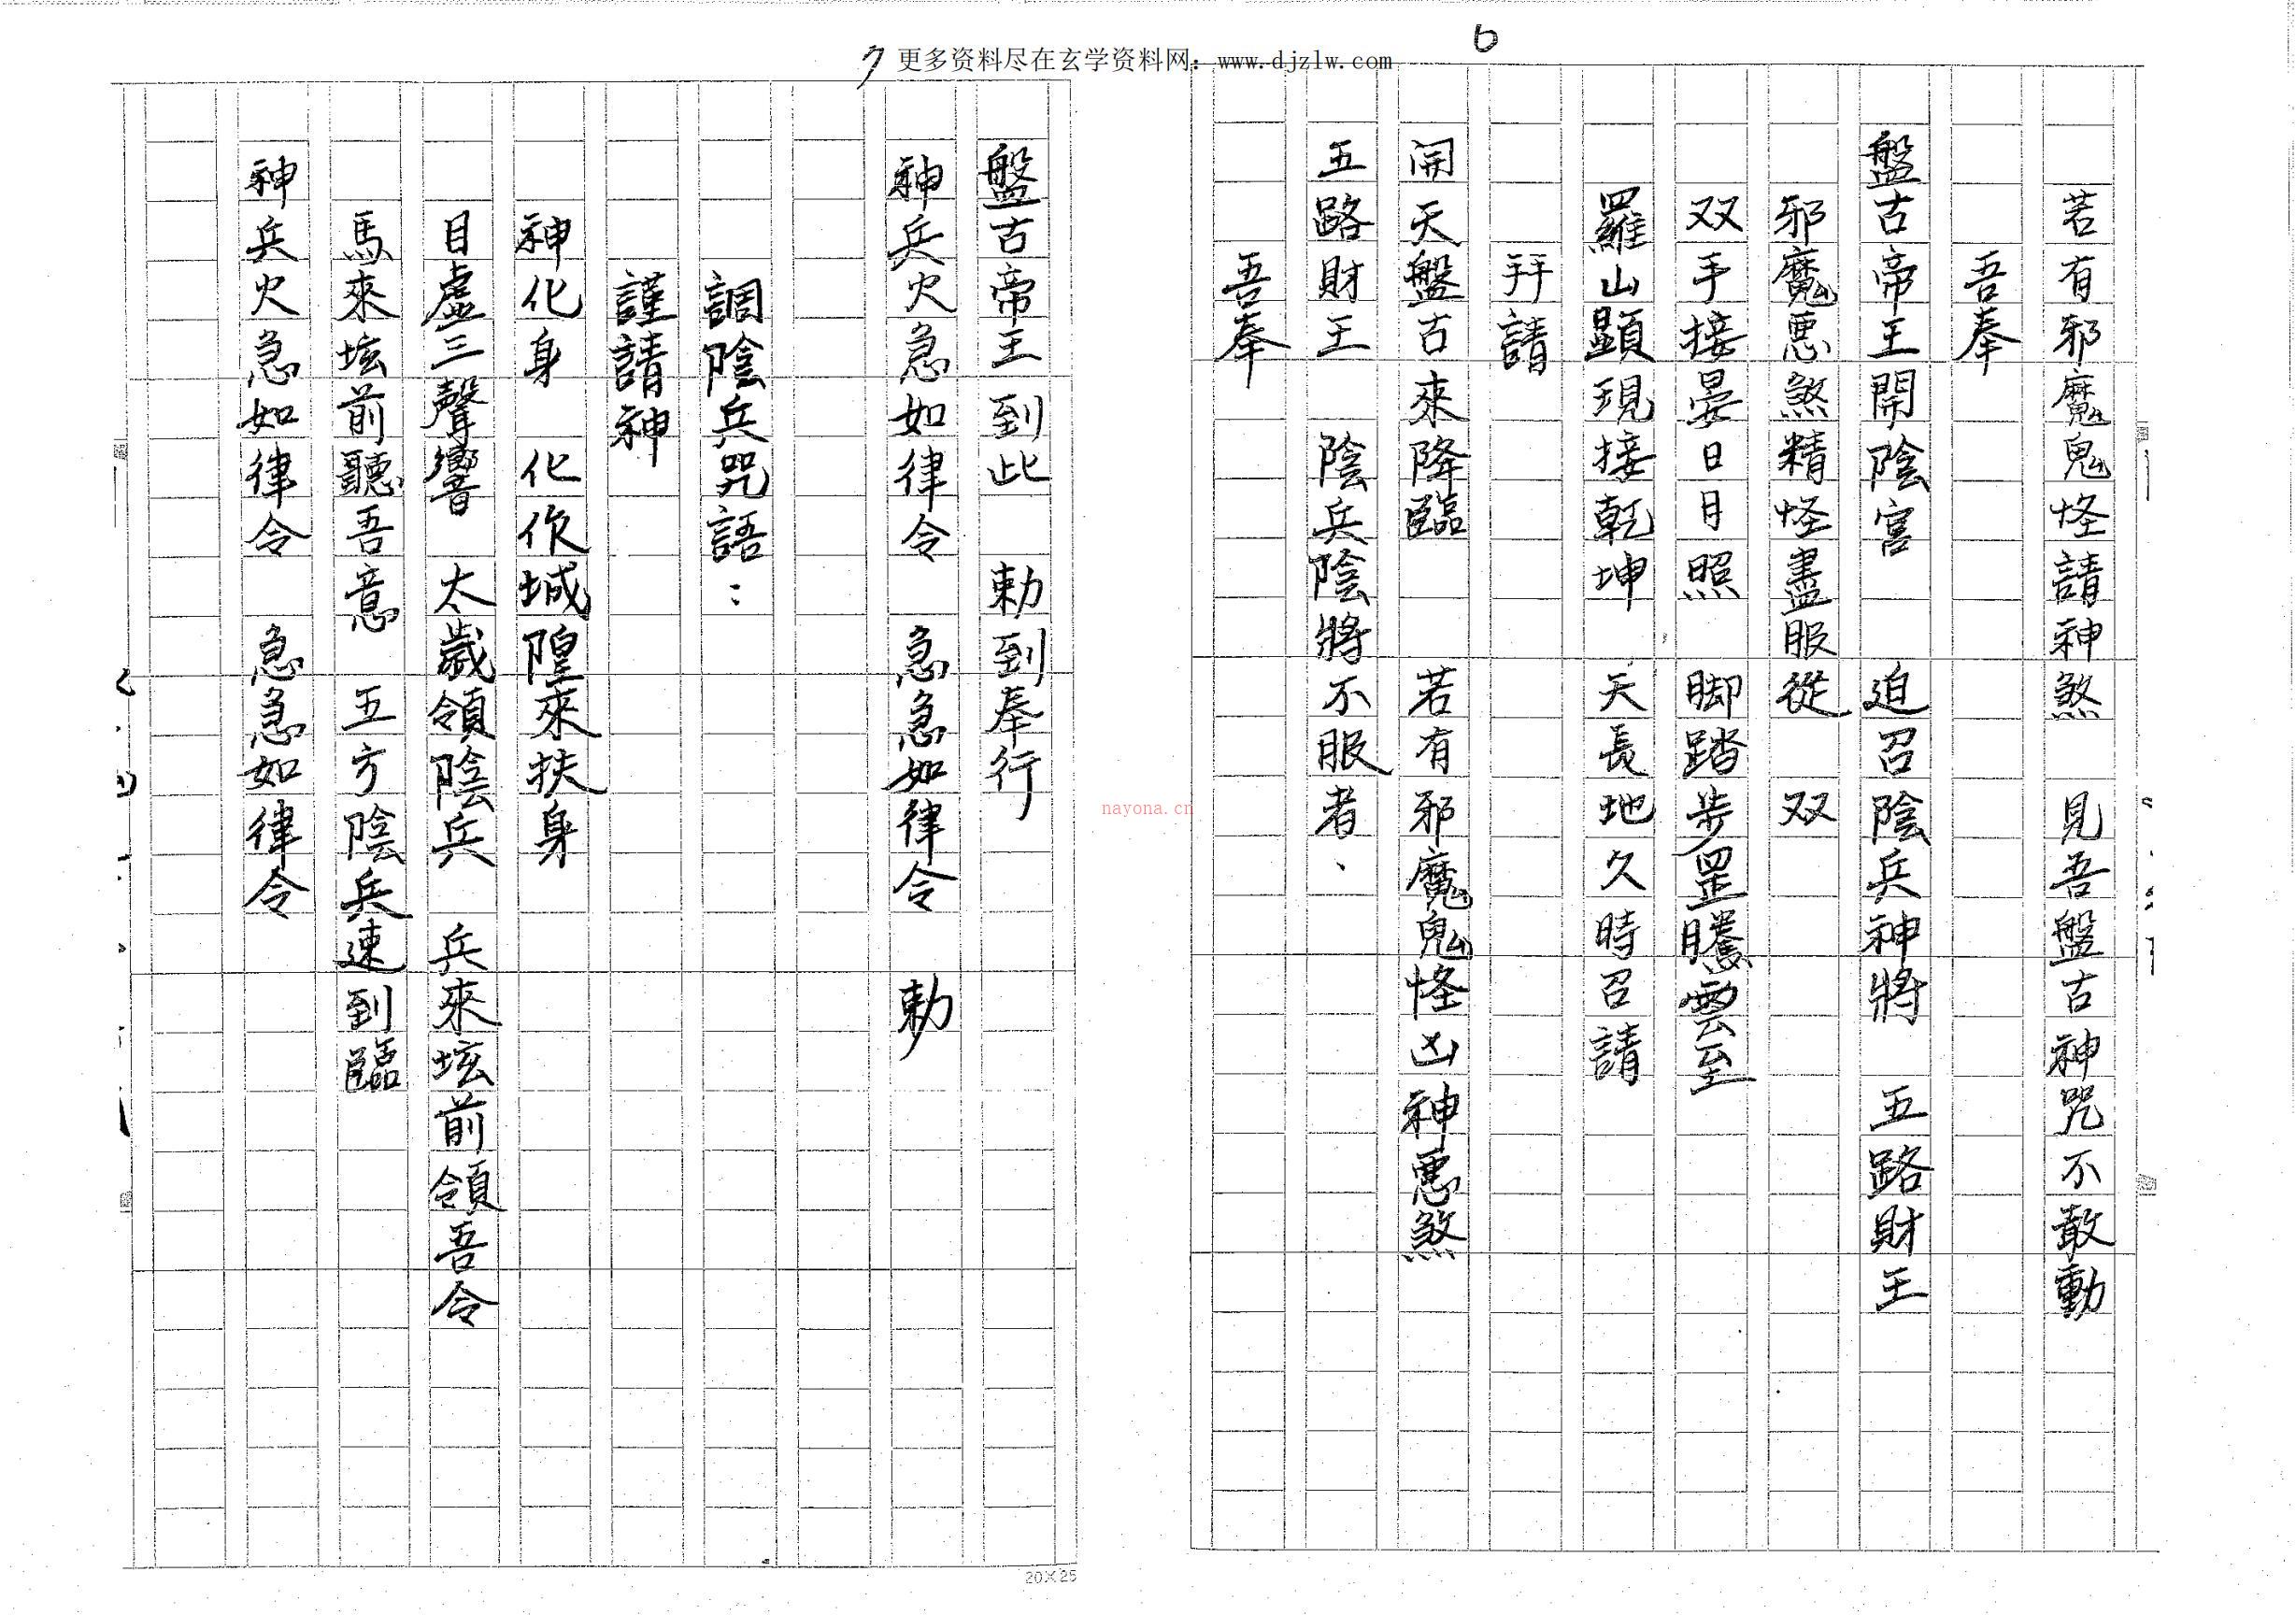 6
更多资料尽在玄学资料网：www.djzlw.com
若有邪魔鬼怪請神煞 見吾盤古神咒不敢動
吾奉
盤古帝王開陰宮 迫召陰兵神將 五路財王
邪魔惡煞精怪盡服從 双
双手接晏日月照 脚踏步罡騰雲至
羅山顯現接乾坤 天長地久時召請
拜請
開天盤古來降臨 若有邪魔鬼怪凶神惡煞
五路財王 陰兵陰將不服者、
吾奉
7
盤古帝王到此 勅到奉行
神兵火急如律令 急急如律令 勅
調陰兵咒語：
謹請神
神化身 化作城隍來扶身
目虛三聲響 太歲領陰兵 兵來坛前領吾令
馬來坛前聽吾意 五方陰兵速到臨
神兵火急如律令 急急如律令
20×25
nayona.cn